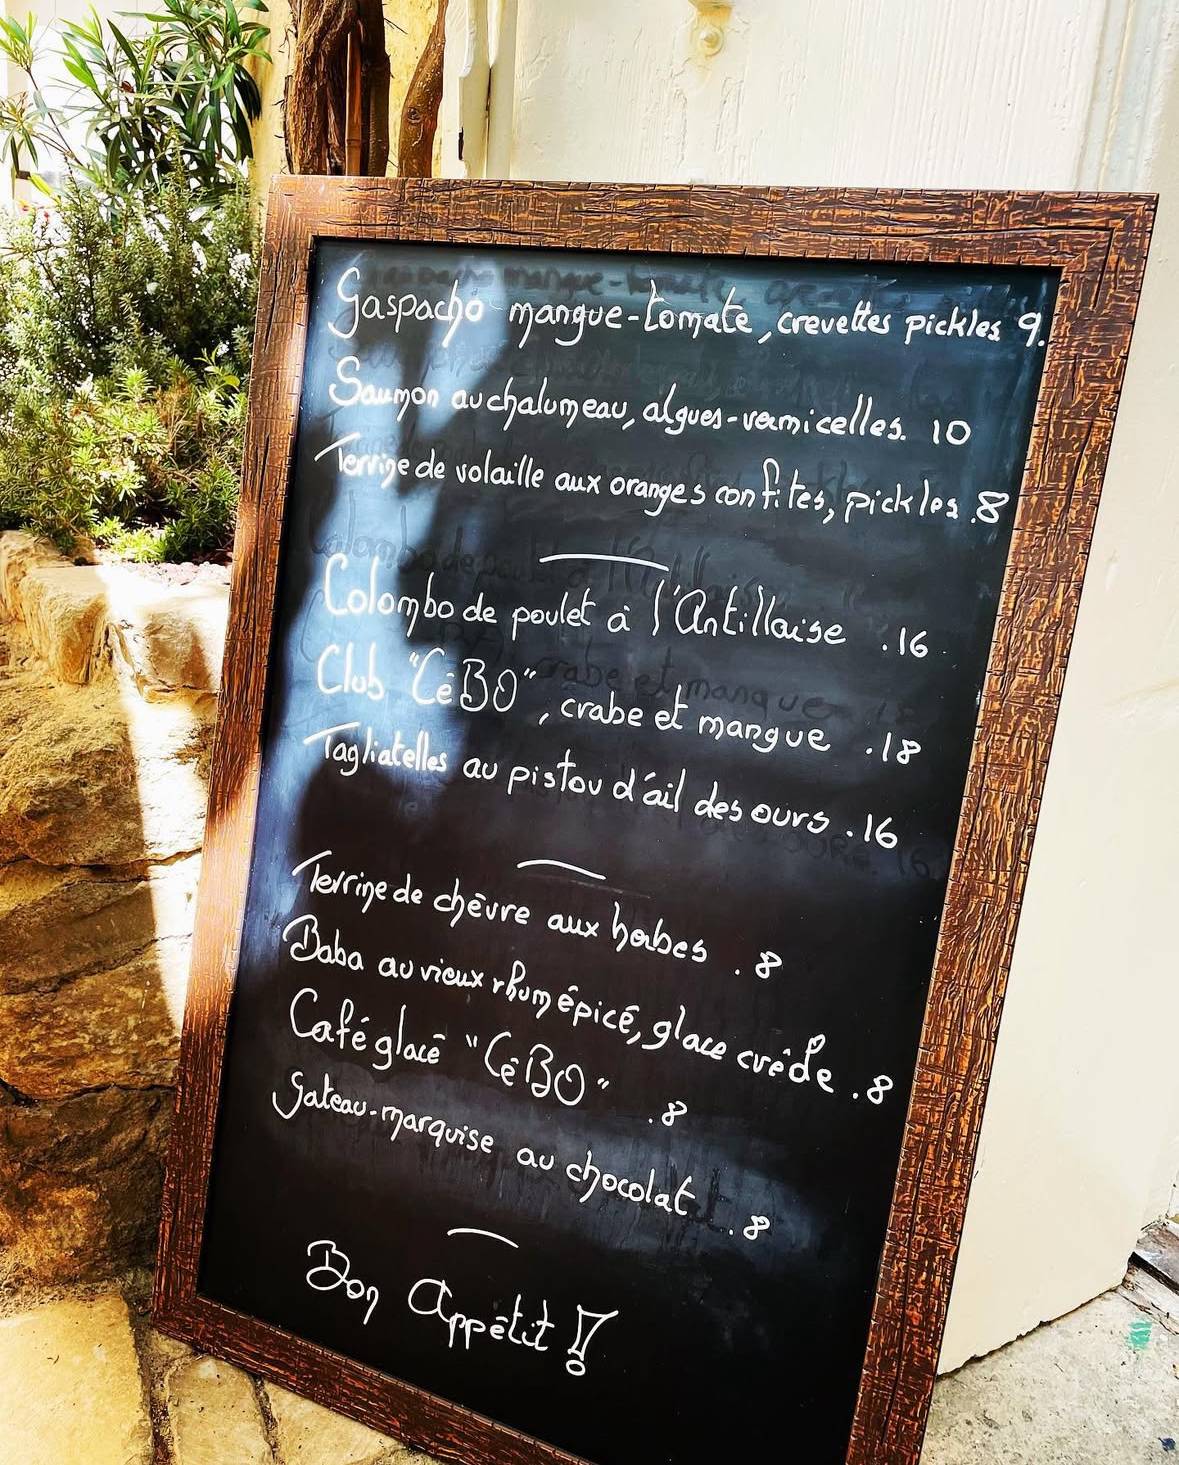 Gaspacho mangue-tomate, crevettes pickles 9.
Saumon au chalumeau, algues-vermicelles. 10
Terrine de volaille aux oranges confites, pickles .8
Colombo de poulet à l'Antillaise .16
Club "CéBO", crabe et mangue .18
Tagliatelles au pistou d'ail des ours .16
Terrine de chèvre aux herbes .8
Baba au vieux rhum épicé, glace crème .8
Café glacé "CéBO" .8
Gateau-marquise au chocolat .8
Bon Appétit !